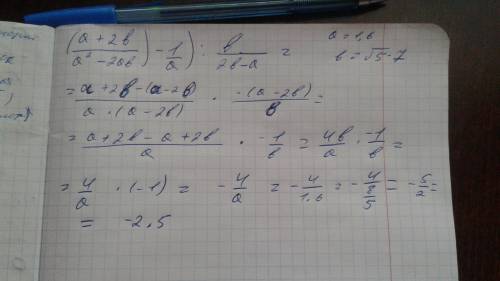 ((a + 2b)/(a² - 2ab) - 1/a) : b/(2b-a) =   a = 1,6
b = √5 - 7
= (a+2b-(a-2b))/(a·(a-2b)) · (-(a-2b))/b =
= (a+2b-a+2b)/a · -1/b = 4b/a · -1/b =
= 4/a · (-1) = -4/a = -4/1.6 = -4/(8/5) = -5/2 =
= -2.5